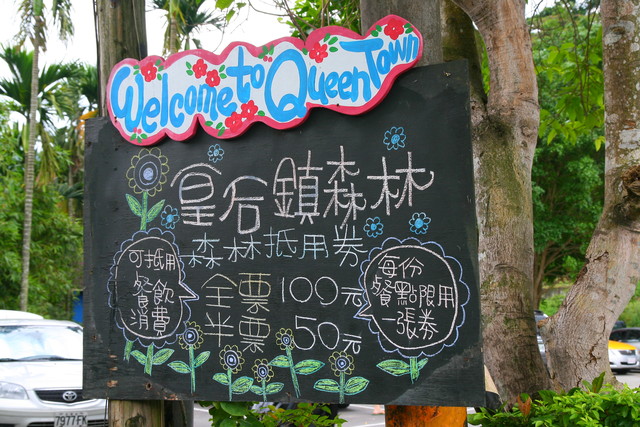 Welcome to Queen Town
皇后鎮森林
森林抵用券
可抵用
餐飲
消費
全票 100元
半票 50元
每份
餐點限用
一張券